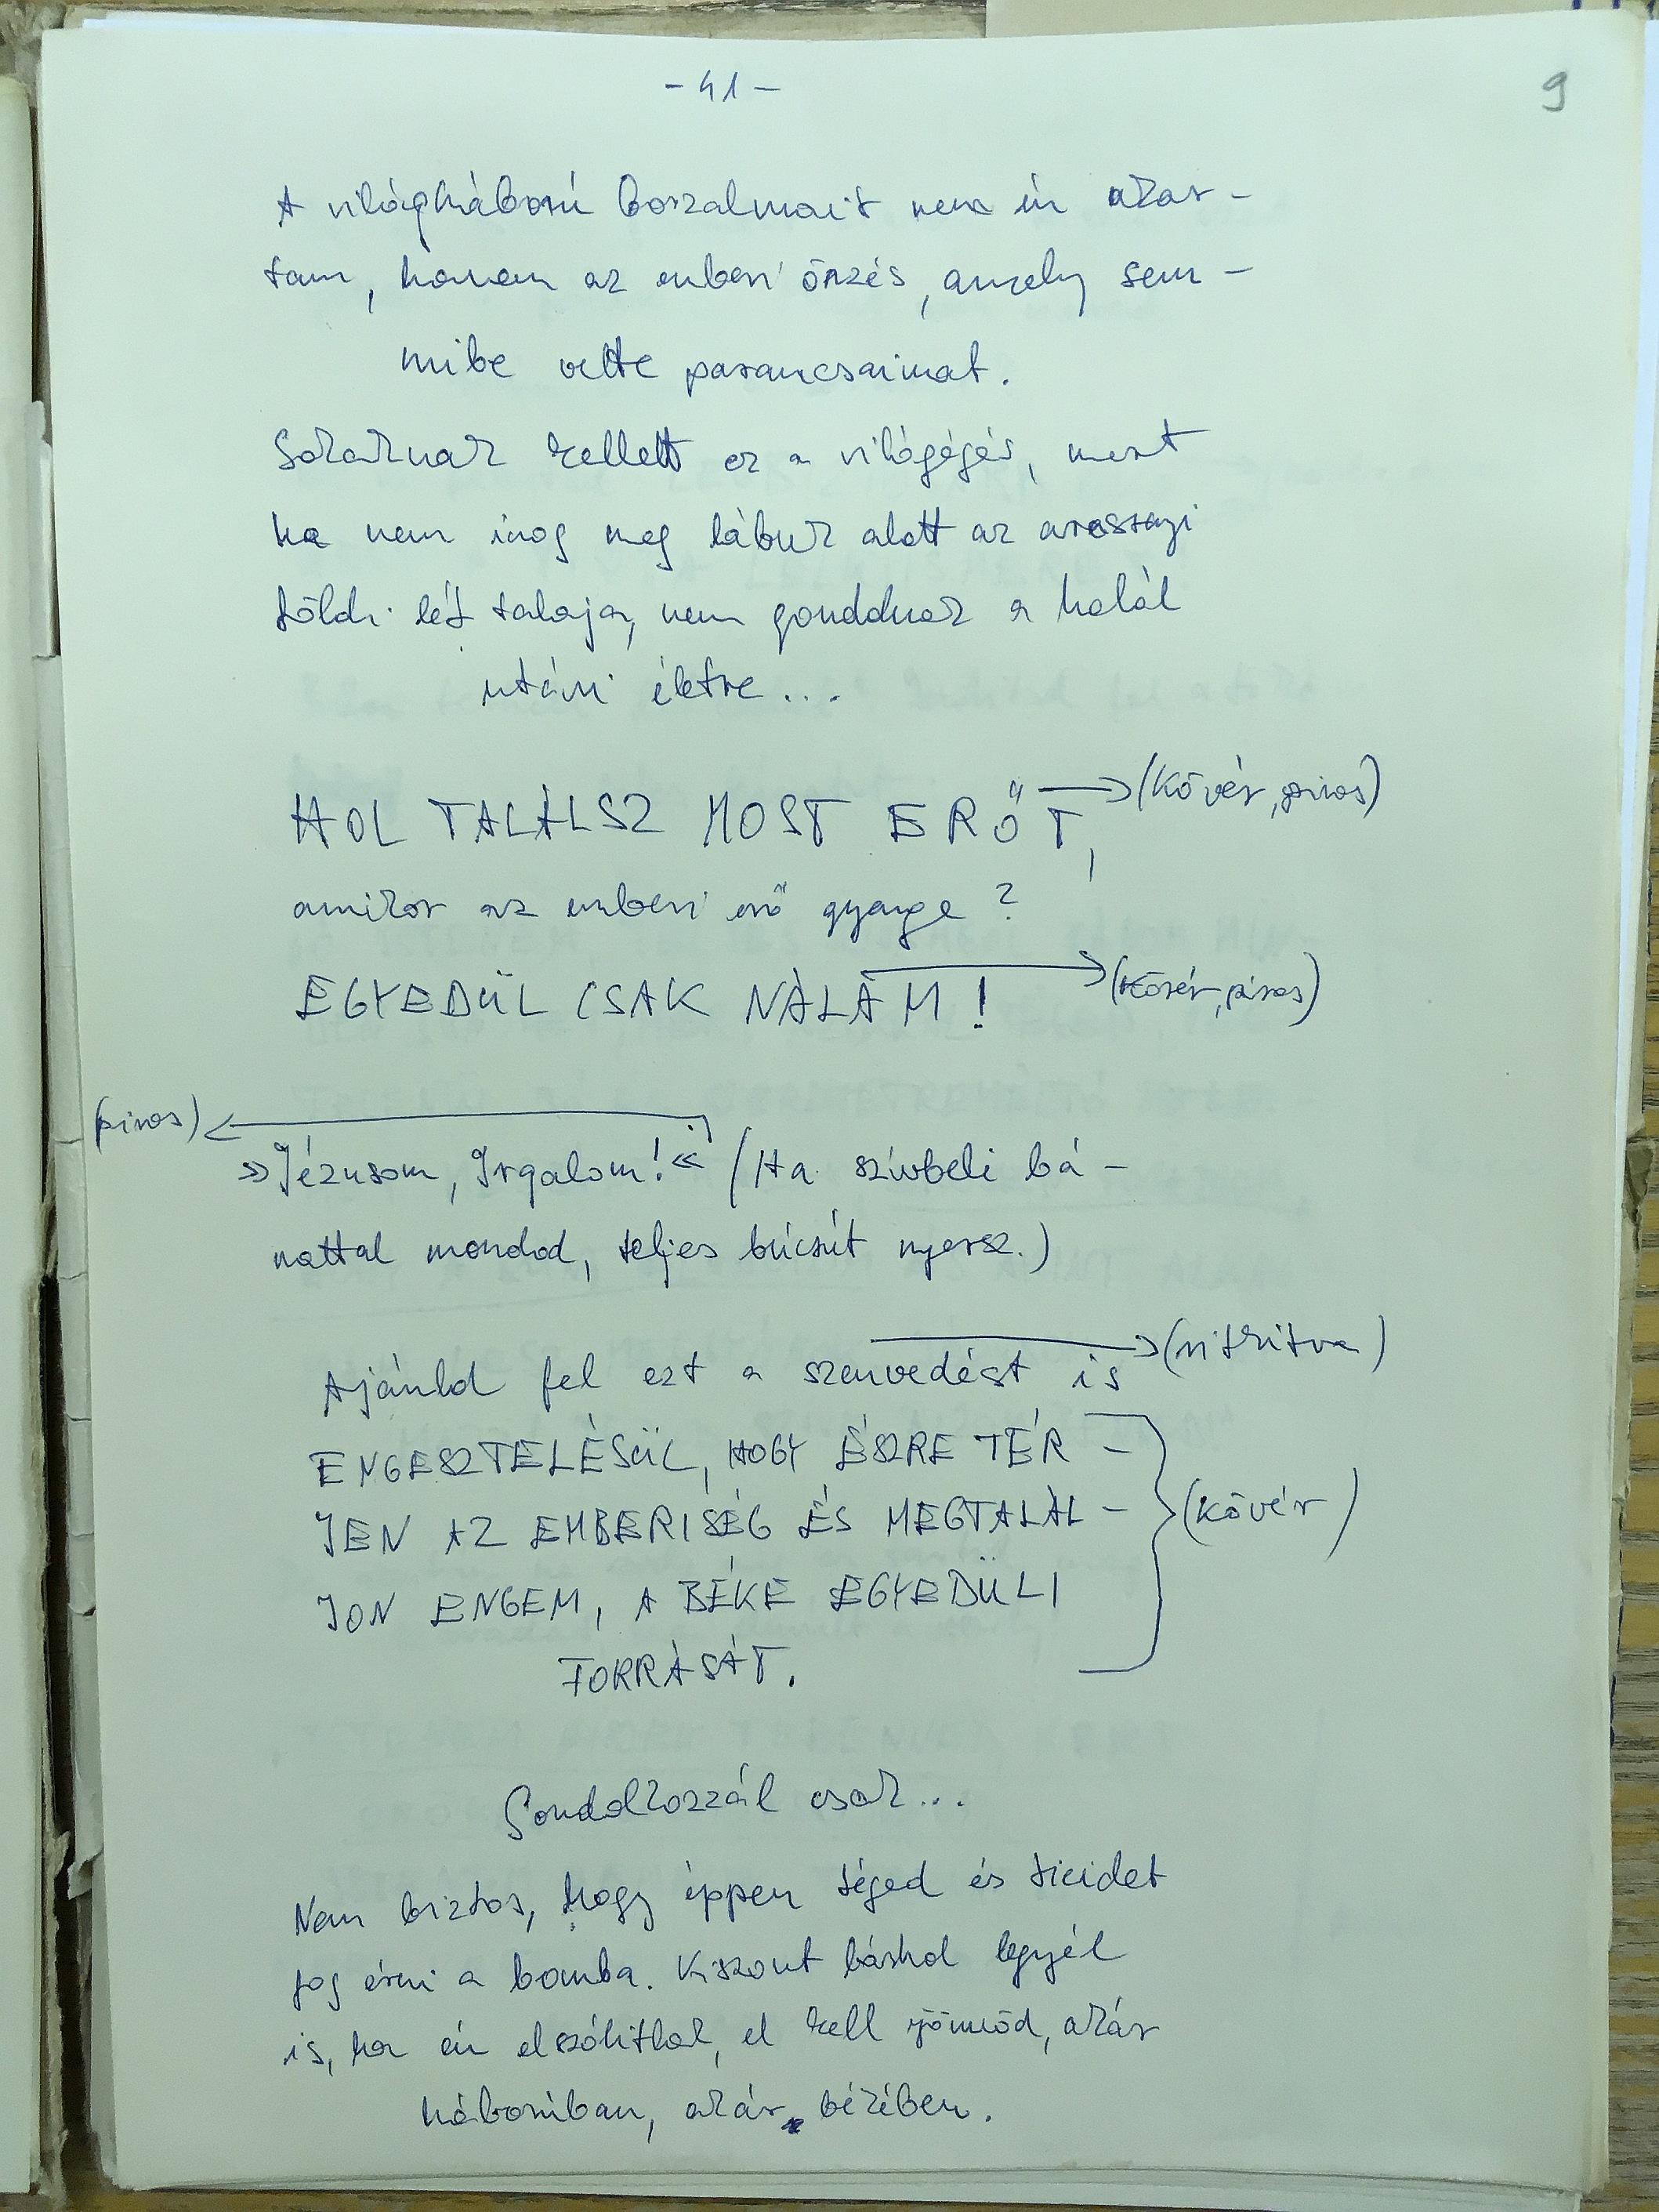 - 41 -
9
A világháború borzalmait nem én akar-
tam, hanem az emberi önzés, amely sem-
mibe vette parancsaimat.
Sokaknak kellett ez a világégés, mert
ha nem inog meg lábuk alatt az
földi lét talaja, nem gondolnak a halál
utáni életre...
HOL TALÁLSZ MOST ERŐT, (Kövér, piros)
amikor az emberi erő gyenge?
EGYEDÜL CSAK NÁLAM! (Kövér, piros)
(piros)
»Jézusom, Irgalom!« (Ha szívbeli bá-
nattal mondod, teljes búcsút nyersz.)
(ritkítva)
Ajánld fel ezt a szenvedést is
ENGESZTELÉSÜL, HOGY ÉSZRE TÉR-
JEN AZ EMBERISÉG ÉS MEGTALÁL- (Kövér)
JON ENGEM, A BÉKE EGYEDÜLI
FORRÁSÁT.
Gondolkozzál csak...
Nem biztos, hogy éppen téged és tieidet
fog érni a bomba. Viszont bárhol legyél
is, ha én elszólítlak, el kell jönnöd, akár
háborúban, akár békében.